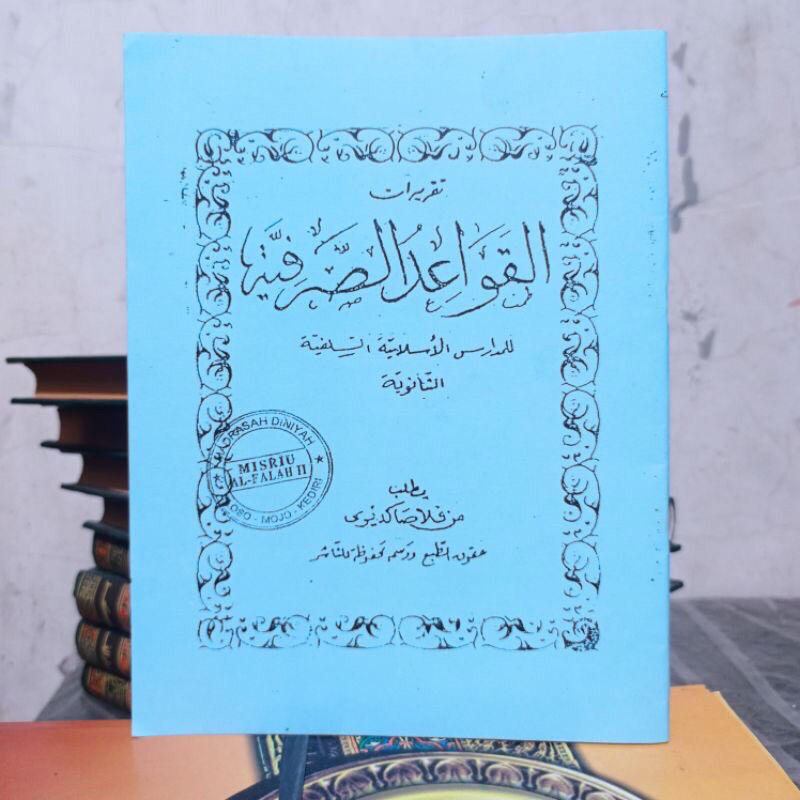 تقريرات
القَوَاعِدُ الصَّرْفِيَّة
للمدارس الأسلامية السّلفيّة
الثّانويّة
MADRASAH DINIYAH
MISRIU
AL-FALAH II
LOSO - MOJO - KEDIRI
يطلب
من فلاصا كديرى
حقوق الطّبع ورسمه محفوظة للنّاشر